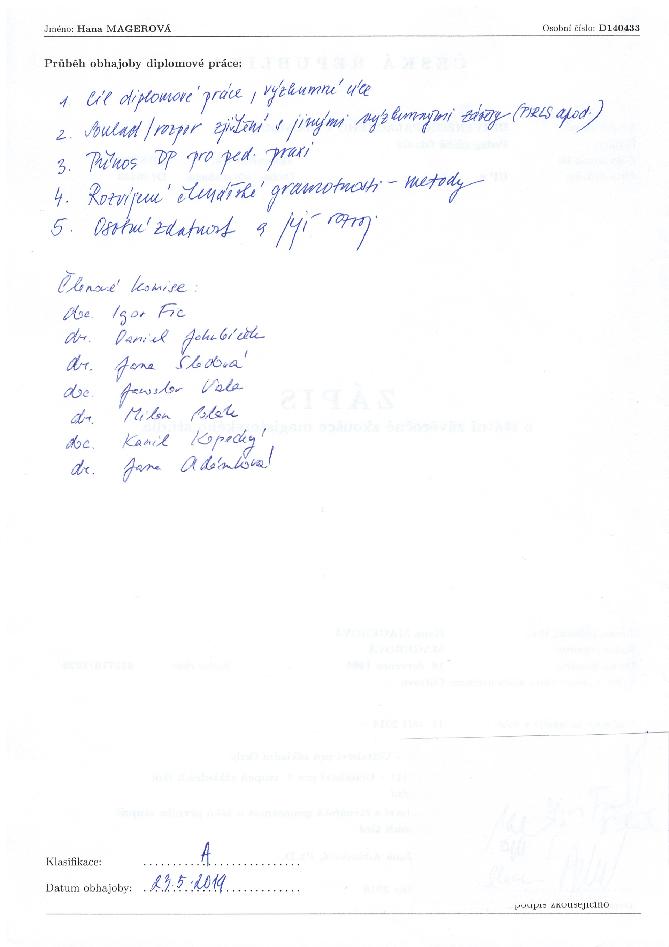 Jméno: Hana MAGEROVÁ Osobní číslo: D140433
Průběh obhajoby diplomové práce:
1 Cíl diplomové práce, výzkumné cíle
2. Soulad/rozpor zjištění s jinými výzkumnými závěry (PIRLS apod.)
3. Přínos DP pro ped. praxi
4. Rozvíjení čtenářské gramotnosti - metody
5. Osobní zdatnost a její rozvoj
Členové komise:
doc. Igor Fic
dr. Daniel Jakubíček
dr. Jana Sladová
doc. Jaroslav Vala
dr. Milan Polák
doc. Kamil Kopecký
dr. Jana Adámková
Klasifikace: A
Datum obhajoby: 23.5.2019
podpis zkoušejícího